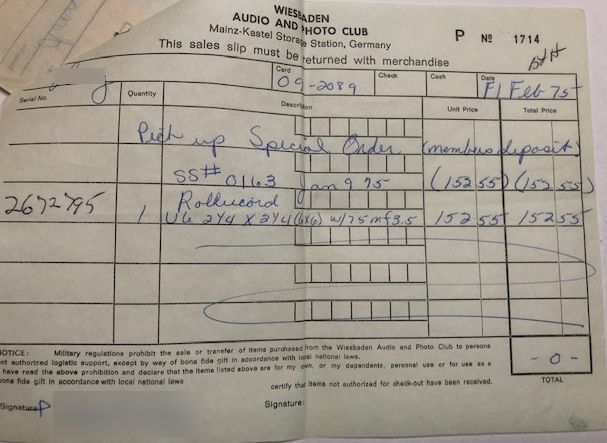 WIESBADEN
AUDIO AND PHOTO CLUB
Mainz-Kastel Storage Station, Germany
P No 1714
This sales slip must be returned with merchandise
Card
09-2089
Check
Cash
Date
F1 Feb 75
Serial No.
Quantity
Description
Unit Price
Total Price
Pick up Special Order (members deposit)
SS# 0163 Jan 9 75 (152 55) (152 55)
2672795 1 Rolleicord
2 1/4 X 2 1/4 (6x6) w/75mf3.5 152 55 152 55
NOTICE: Military regulations prohibit the sale or transfer of items purchased from the Wiesbaden Audio and Photo Club to persons
not authorized logistic support, except by way of bona fide gift in accordance with local national laws.
have read the above prohibition and declare that the items listed above are for my own, or my dependents, personal use or for use as a
bona fide gift in accordance with local national laws
certify that items not authorized for check-out have been received.
- 0 -
TOTAL
Signature
Signature: